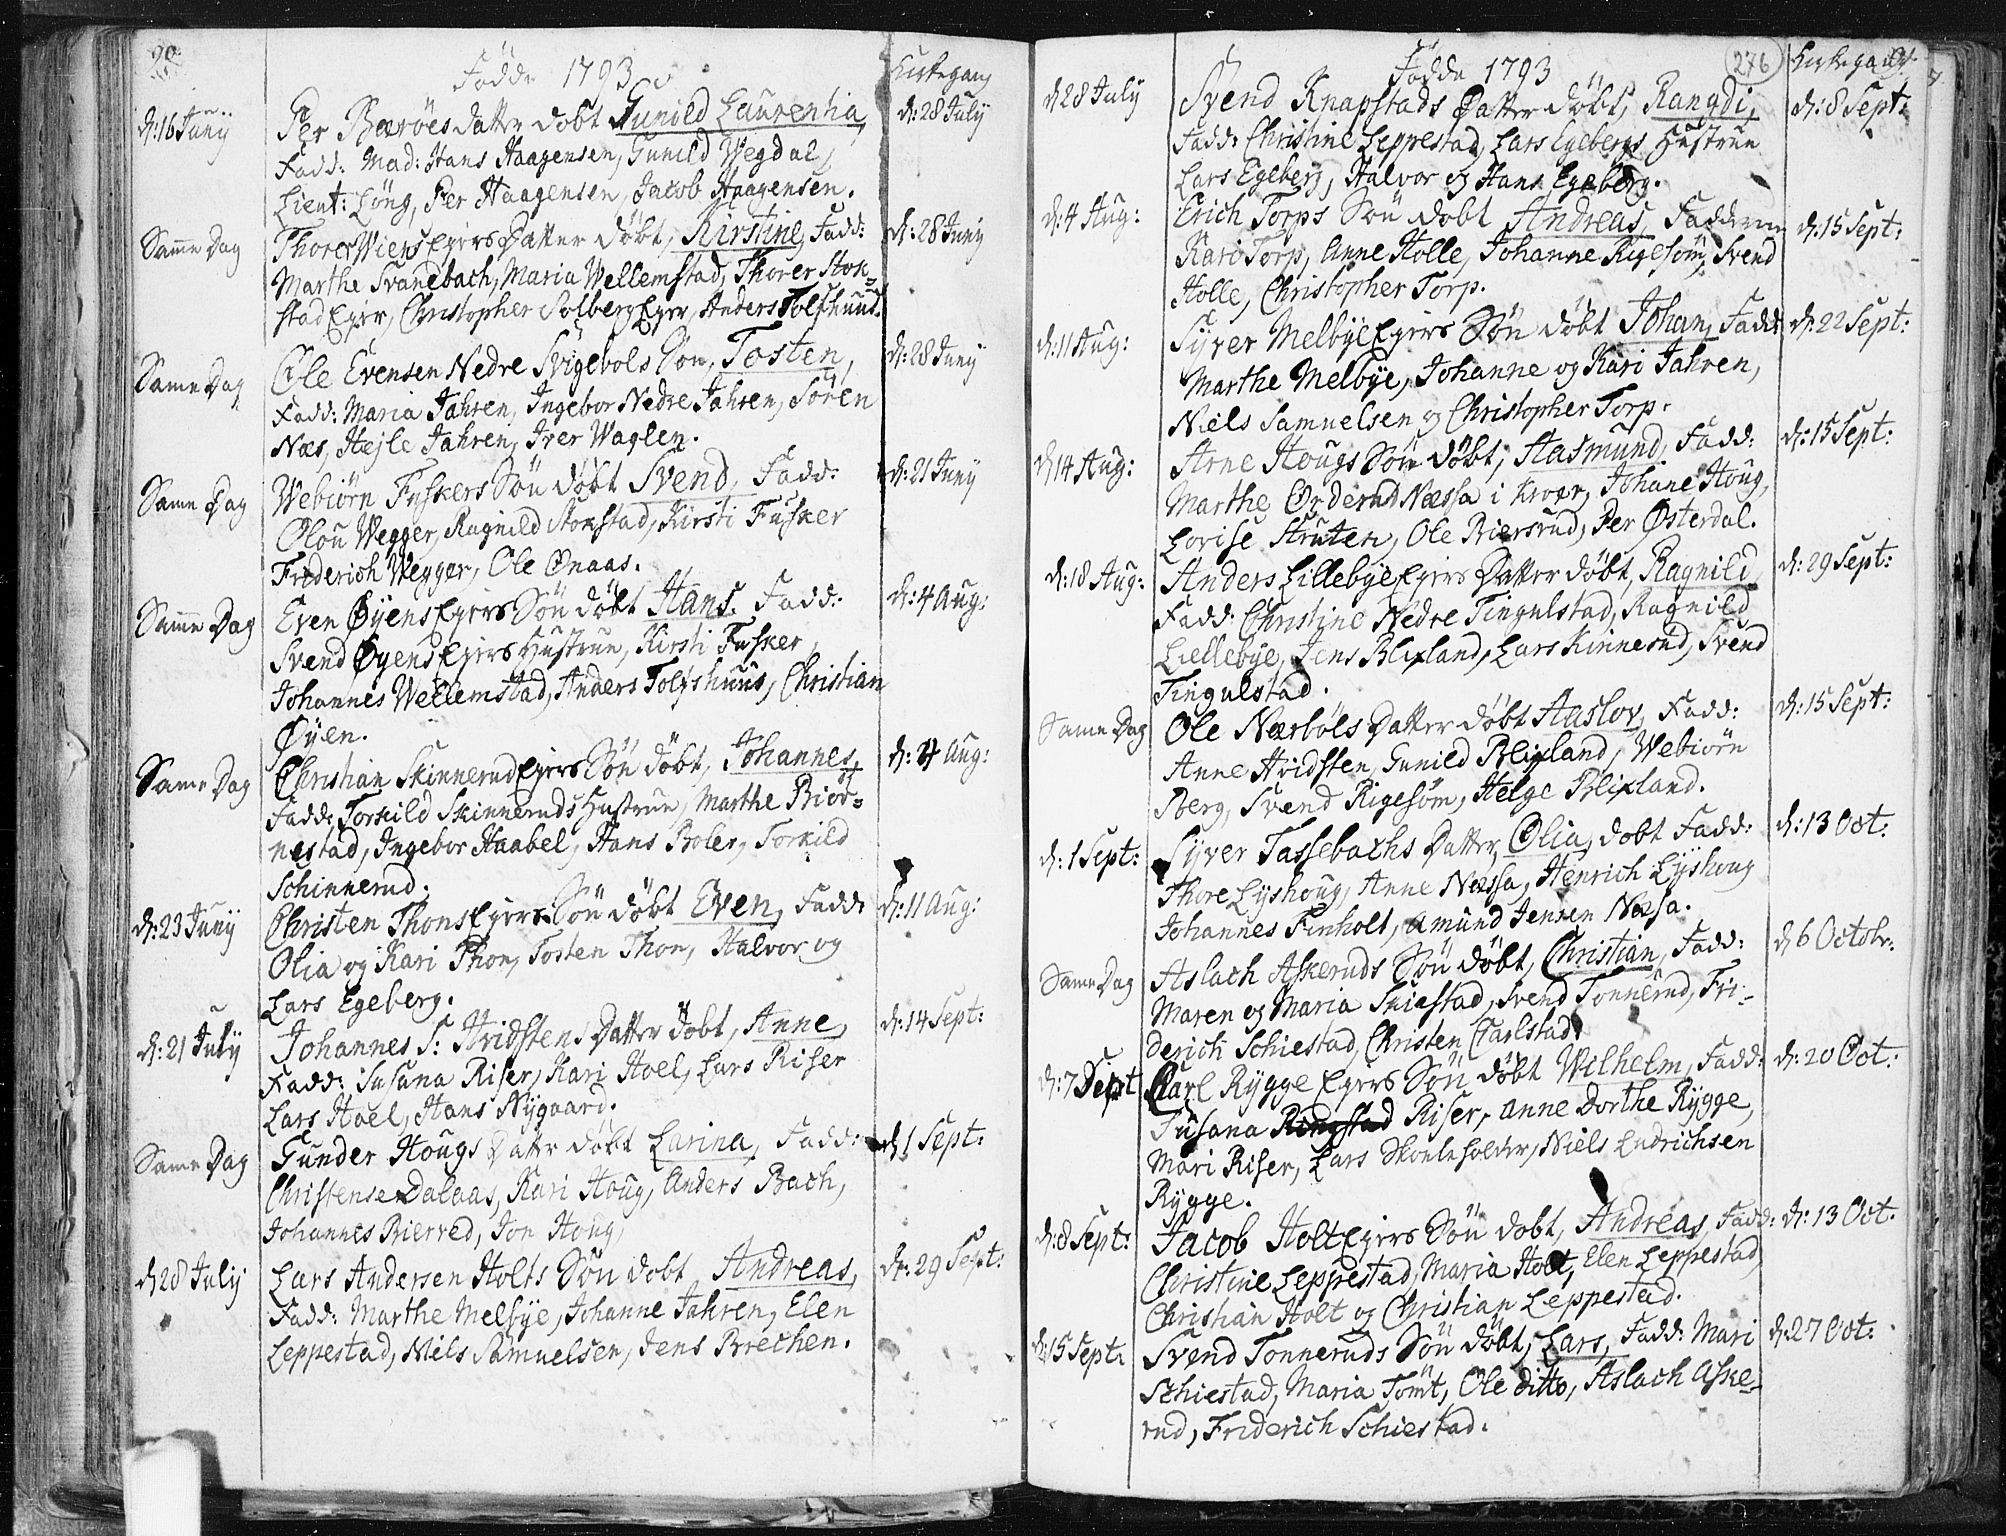 90
Födde 1793
Kirkegang
d: 16 Junij
Per Bæröes datter döbt Gunild Laurentia,
d: 28 July
Fadd: Mad: Hans Haagensen, Gunild Wegdal,
Lieut: Löng, Per Haagensen, Jacob Haagensen.
Same Dag
Thorer Wiens Egers Datter döbt, Kirstine, Fadd:
d: 28 Juny
Marthe Svanebach, Maria Wellemstad, Thorer Stok-
stad Eger, Christopher Solberg Eger, Anders Tolfshuus.
Same Dag
Ole Evensen Nedre Svigebols Sön, Tosten,
d: 28 Juny
Fadd: Maria Jahren, Ingebor Nedre Jahren, Sören
Næs, Hejle Jahren, Iver Waglen.
Same Dag
Webiörn Fuskers Sön döbt Svend, Fadd:
d: 21 Juny
Olou Wegger, Ragnild Stokstad, Kirsti Fusker
Friderich Wegger, Ole Onaas.
Same Dag
Even Øyens Egers Sön döbt Hans. Fadd:
d: 4 Aug:
Svend Øyens Egers Hustrue, Kirsti Fusker,
Johannes Wellemstad, Anders Tolfshuus, Christian
Øyen.
Same Dag
Christian Skinnerud Egers Sön döbt, Johannes,
d: 4 Aug:
Fadd: Torkild Skinneruds Hustrue, Marthe Biör-
nestad, Ingebor Haabel, Hans Boler, Torkild
Schinnerud.
d: 23 Juny
Christen Thons Egers Sön döbt Even, Fadd:
d: 11 Aug:
Olia og Kari Thon, Tosten Thon, Halvor og
Lars Egeberg.
d: 21 July
Johannes S: Hvidstens Datter döbt, Anne,
d: 14 Sept:
Fadd: Susana Riser, Kari Hoel, Lars Riser
Lars Hoel, Hans Nygaard.
Same Dag
Gunder Hougs Datter döbt Larina, Fadd:
d 1 Sept:
Christense Dalaas, Kari Houg, Anders Bach,
Johannes Bierred, Jon Houg,
d 28 July
Lars Andersen Holts Sön döbt Andreas,
d: 29 Sept:
Fadd: Marthe Melbye, Johanne Jahren, Elen
Leppestad, Niels Samuelsen, Jens Brechen.
Födde 1793
276
Kirkegang
91
d 28 July
Svend Knapstads Datter döbt, Rangdi,
d: 8 Sept:
Fadd: Christine Leppestad, Lars Egebergs Hustrue
Lars Egeberg, Halvor og Hans Egeberg.
d: 4 Aug:
Erich Torps Sön döbt Andreas, Fadderne
d: 15 Sept:
Kari Torp, Anne Holle, Johanne Rigesöm, Svend
Holle, Christopher Torp.
d: 11 Aug:
Syver Melbye Egers Sön döbt Johan, Fadd:
d: 22 Sept:
Marthe Melbye, Johanne og Kari Jahren,
Niels Samuelsen og Christopher Torp.
d 14 Aug:
Arne Hougs Sön döbt, Aasmund, Fadd:
d: 15 Sept:
Marthe Orderud Næssa i Kroer, Johane Houg,
Lovise Struten, Ole Biersrud, Per Østerdal.
d: 18 Aug:
Anders Lillebye Egers Datter döbt, Ragnild,
d: 29 Sept:
Fadd: Christine Nedre Tingulstad, Ragnild
Lillebye, Jens Blixland, Lars Kinnerud, Svend
Tingulstad.
Same Dag
Ole Nærböls Datter döbt Aaslov, Fadd:
d: 15 Sept:
Anne Hvidsten, Gunild Blixland, Webiörn
Berg, Svend Rigesöm, Helge Blixland.
d: 1 Sept:
Syver Tassebachs Datter, Olia, döbt Fadd:
d: 13 Oct:
Thore Lyshoug, Anne Næssa, Henrich Lyshoug
Johannes Finholt, Amund Jensen Næsa.
Same Dag
Aslach Askeruds Sön döbt, Christian, Fadd:
d 6 Octobr:
Maren og Maria Skiestad, Svend Tonnerud, Fri-
derich Schiestad, Christen Carlstad.
d: 7 Sept
Karl Rygge Egers Sön döbt Wilhelm, Fadd:
d: 20 Oct:
Susana Riser, Anne Dorthe Rygge,
Mari Riser, Lars Skoleholder, Niels Endrichsen
Rygge.
d: 8 Sept:
Jacob Holt Egers Sön döbt, Andreas, Fadd:
d: 13 Oct.
Christine Leppestad, Maria Holt, Elen Leppestad,
Christian Holt og Christian Leppestad.
d: 15 Sept:
Svend Tonneruds Sön döbt, Lars, Fadd: Mari
d: 27 Oct:
Schiestad, Maria Tomt, Ole ditto, Aslach Aske-
rud, Friderich Schiestad.